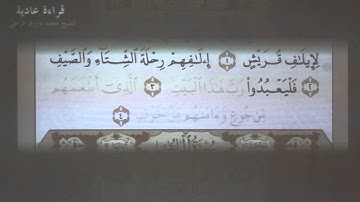 قراءة عادية
لِإِيلَٰفِ قُرَيْشٍ ١ إِۦلَٰفِهِمْ رِحْلَةَ ٱلشِّتَآءِ وَٱلصَّيْفِ
٢ فَلْيَعْبُدُوا۟ رَبَّ هَٰذَا ٱلْبَيْتِ ٣ ٱلَّذِىٓ أَطْعَمَهُم
مِّن جُوعٍ وَءَامَنَهُم مِّنْ خَوْفٍۭ ٤